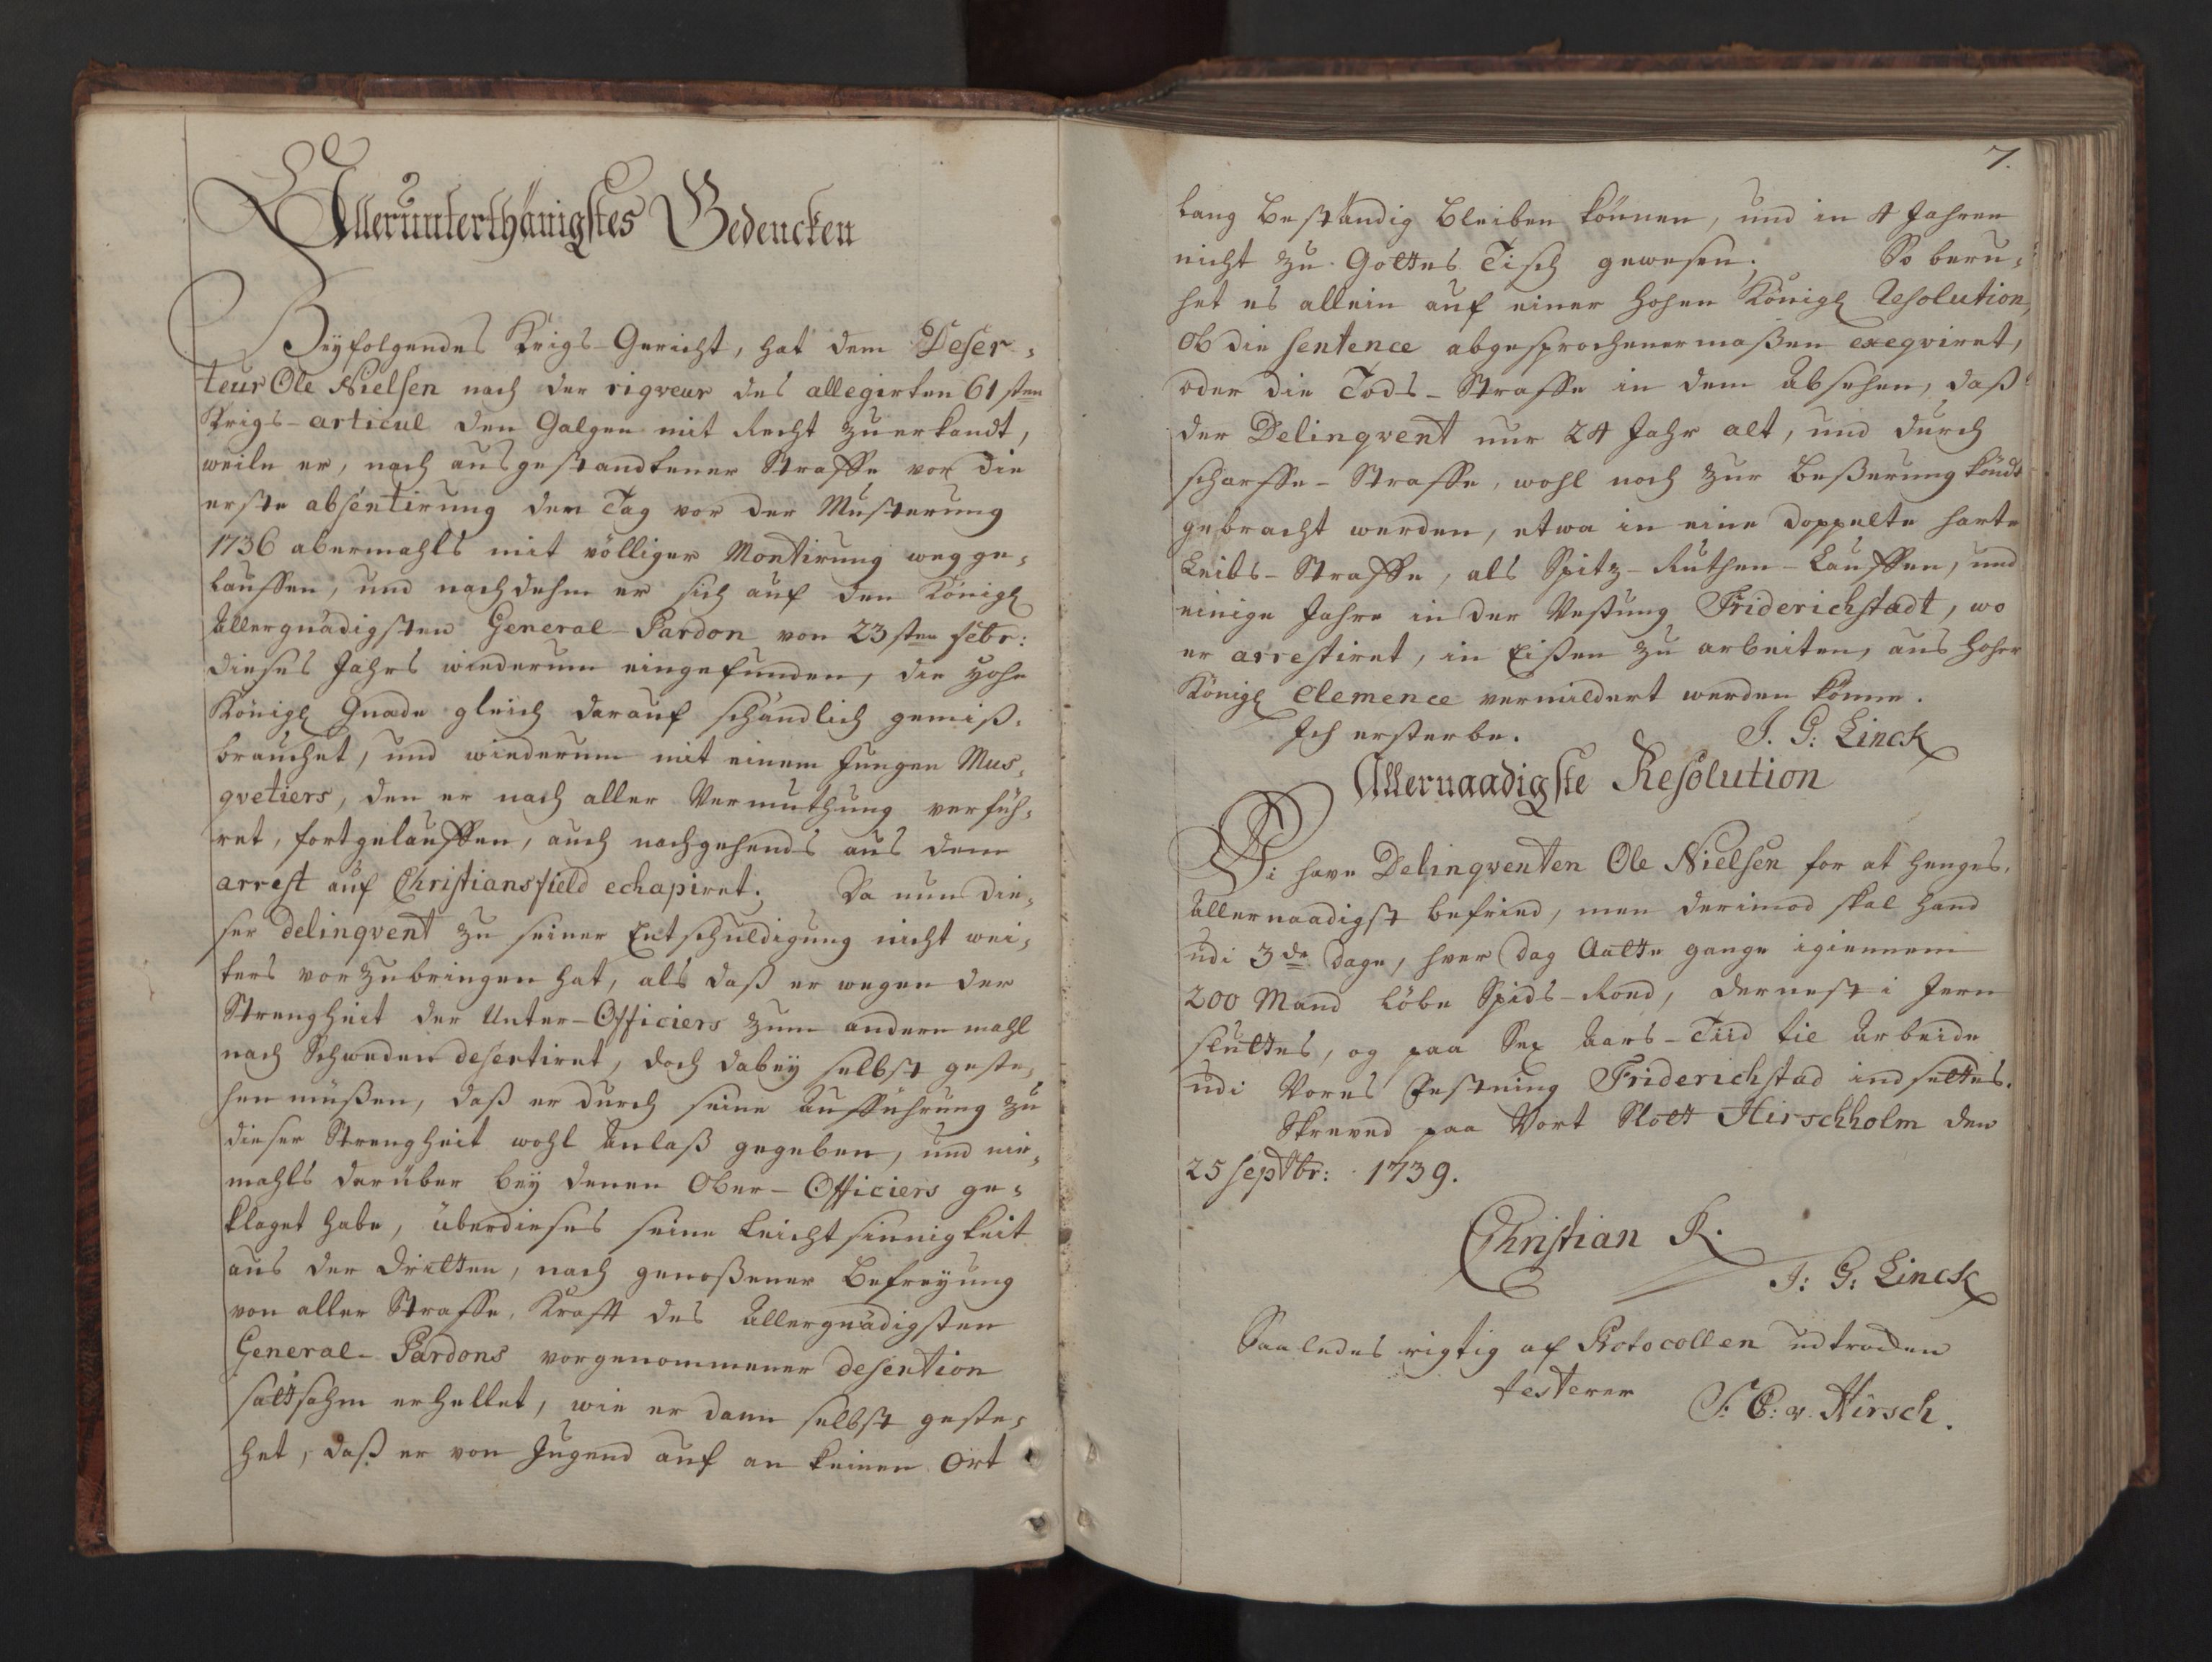 Allerunterthänigstes Bedencken
Beyfolgendes Krigs-Gericht, hat dem Deser-
teur Ole Nielsen nach der rigveur des allegirten 61sten
Krigs-articul den Galgen mit Recht zuerkandt,
weiln er, nach ausgestandtener Straffe vor die
erste absentirung den Tag vor der Musterung
1736 abermahls mit völliger Montirung wegge-
lauffen, und nachdehm er sich auf den Königl
Allergnädigsten General-Pardon von 23sten febr:
dieses Jahrs wiederum eingefunden, die Hohe
Königl Gnade gleich darauf schändlich gemiß-
brauchet, und wiederum mit einem Jungen Mus-
qvetiers, den er nach aller Vermuthung verfüh-
ret, fortgelauffen, auch nachgehends aus dem
arrest auf Christiansfield echapiret. Da nun die-
ser delinqvent zu seiner Entschuldigung nicht wei-
ters vorzubringen hat, als daß er wegen der
Strengheit der Unter-Officiers zum andern mahl
nach Schweden desertiret, doch dabey selbst geste-
hen müßen, daß er durch seine Aufführung zu
dieser Strengheit wohl Anlaß gegeben, und nie-
mahls darüber bey denen Ober-Officiers ge-
klaget habe, überdieses seine Leichtsinnigkeit
aus der dritten, nach genoßener Befreyung
von aller Straffe, Krafft des Allergnädigsten
General-Pardons vorgenommener desertion
sattsahm erhellet, wie er dann selbst geste-
het, daß er von Jugend auf an keinen Ort
7.
lang beständig bleiben können, und in 4 Jahren
nicht zu Gottes Tisch gewesen. So beru-
het es allein auf einer hohen Königl Resolution,
Ob die sentence abgesprochenermaßen exeqviret,
oder die Tods-Straffe in dem Absehen, daß
der Delinqvent nur 24 Jahr alt, und durch
scharffe-Straffe, wohl noch zur Beßerung köndt
gebracht werden, etwa in eine doppelte harte
Leibs-Straffe, als Spitz-Ruthen-Lauffen, und
einige Jahre in der Vestung Friderichstadt, wo
er arrestiret, in Eißen zu arbeiten, aus hoher
Königl Clemence vermildert werden könne.
Ich ersterbe. J. G: Linck
Allernaadigste Resolution
Vi have Delinqventen Ole Nielsen for at henges,
Allernaadigst befried, men derimod skal hand
udi 3de dage, hver dag Aatte gange igiennem
200 Mand löbe Spids-Roed, dernest i Jern
sluttes, og paa Sex Aars-Tiid til Arbeide
udi Vores Festning Friderichstad indsettes.
Skreved paa Vort Slott Hirschholm den
25 septbr: 1739.
Christian R.
J: G: Linck
Saaledes rigtig af Protocollen udtrcden
testerer
F. C: v. Hirsch.